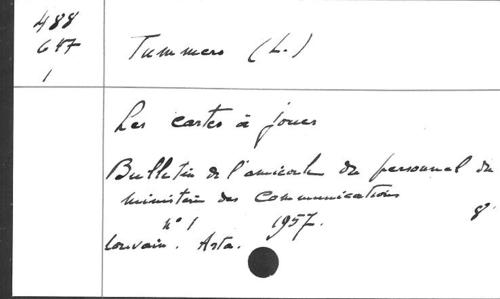 488
647
1
Tummers (L.)
Les cartes à jouer
Bulletin de l'amicale du personnel du
ministère des Communications
n° 1 1957. 8°
Louvain. Asta.